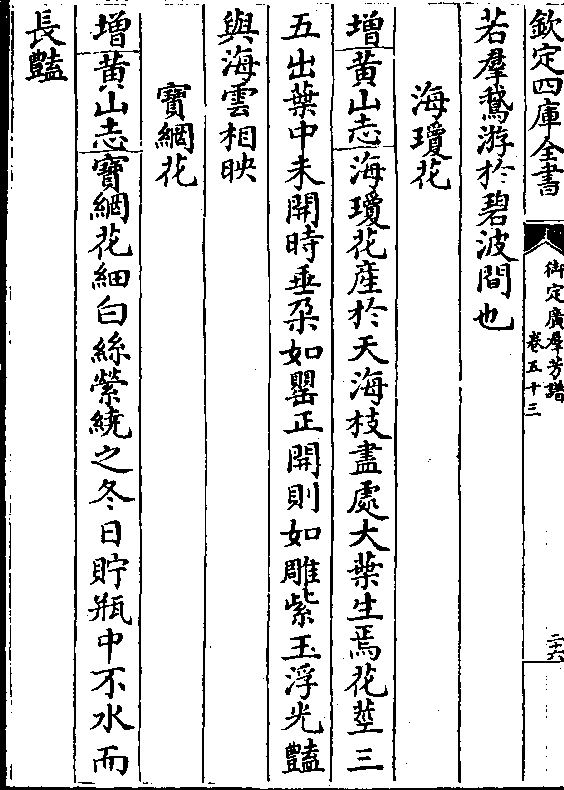 欽定四庫全書
御定廣羣芳譜
卷五十三
二六
若羣鵞游於碧波間也
海瓊花
增黄山志海瓊花産於天海枝盡處大葉生焉花莖三
五出葉中未開時垂朶如罌正開則如雕紫玉浮光豔
與海雲相映
寶網花
增黄山志寶網花細白絲縈繞之冬日貯瓶中不水而
長豔